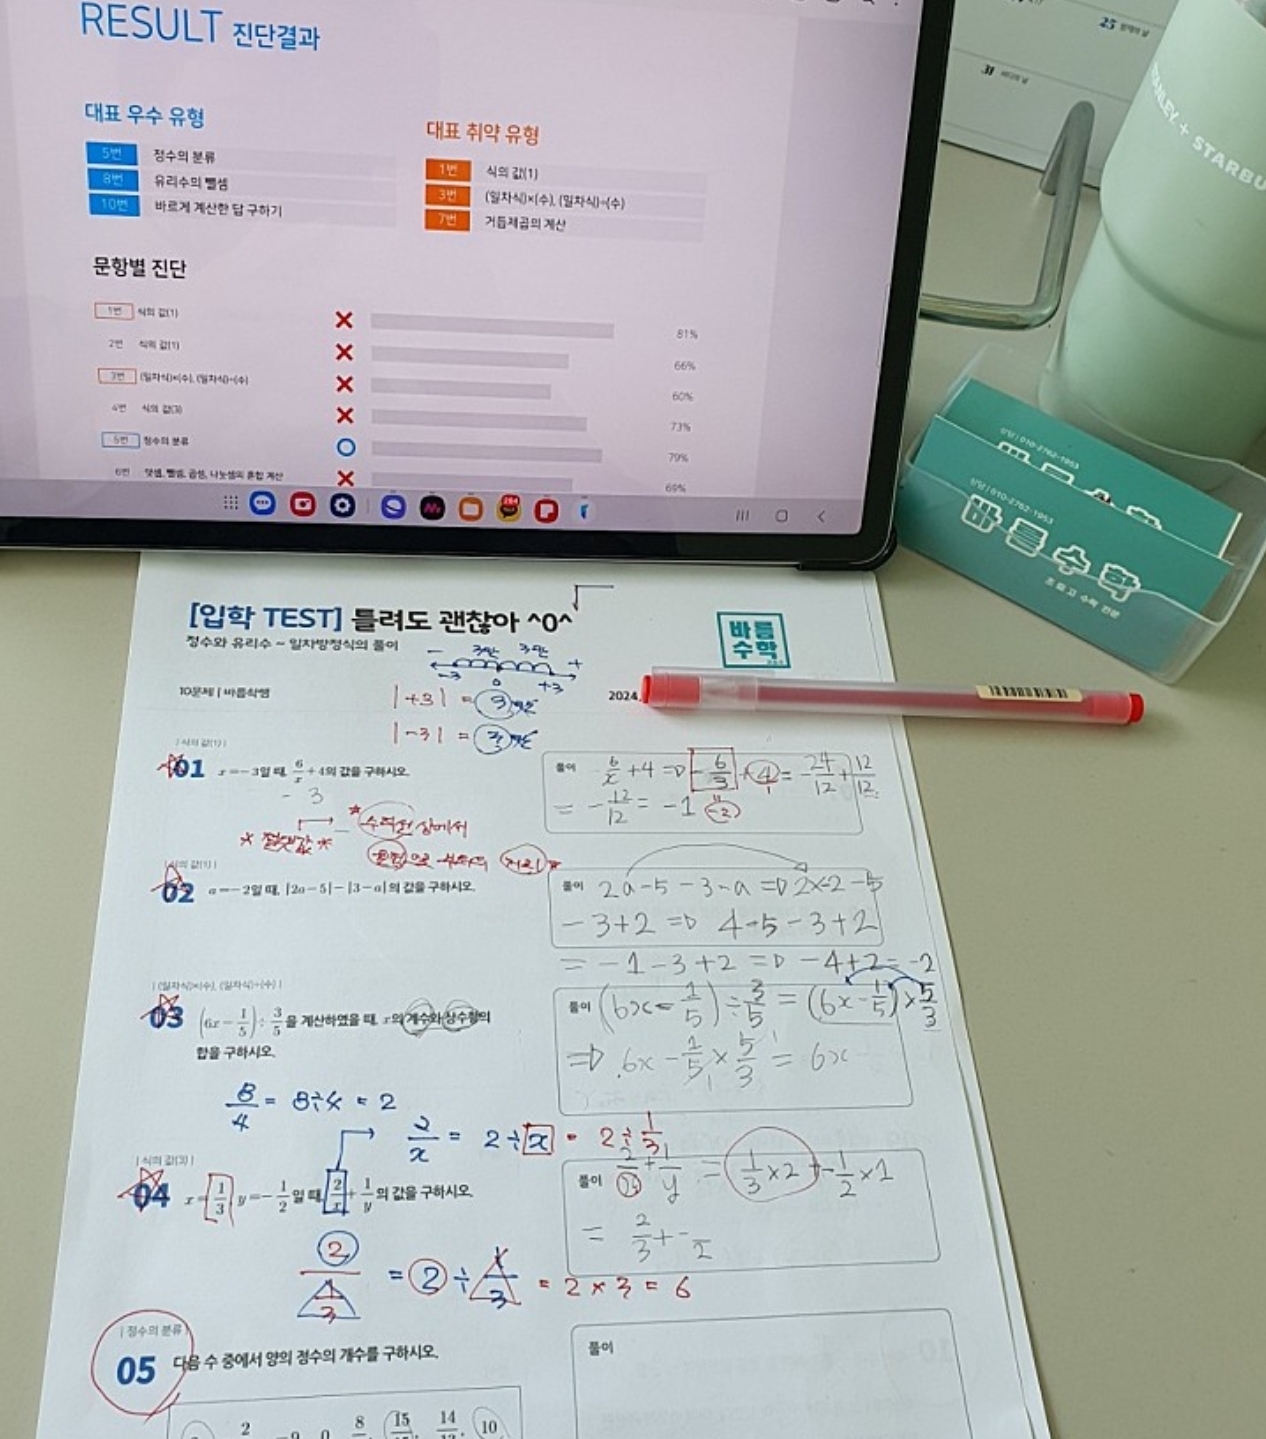 RESULT 진단결과
대표 우수 유형
5번 정수의 분류
8번 유리수의 뺄셈
10번 바르게 계산한 답 구하기
대표 취약 유형
1번 식의 값(1)
3번 (일차식)×(수), (일차식)÷(수)
7번 거듭제곱의 계산
문항별 진단
1번 식의 값(1) 81%
2번 식의 값(1) 66%
3번 (일차식)×(수), (일차식)÷(수) 60%
4번 식의 값(3) 73%
5번 정수의 분류 79%
6번 덧셈, 뺄셈, 곱셈, 나눗셈의 혼합 계산 69%
25
31
STANLEY + STARBU
상담 | 010-2762-1963
상담 | 010-2762-1963
바름수학
초 중 고 수학 전문
[입학 TEST] 틀려도 괜찮아 ^0^
정수와 유리수 ~ 일차방정식의 풀이
바름
수학
10문제 | 바름학쌤
2024.
- 3만 3만 +
-3 0 +3
|+3| = 3
|-3| = 3
| 식의 값(1) |
01 x=-3일 때, 6/x+4의 값을 구하시오.
- 3
풀이 6/x+4 => -6/3+4 = -24/12+12/12
= -12/12 = -1 (-2)
* 절댓값 *
* 수직선 상에서
원점으로 부터의 거리 *
| 식의 값(1) |
02 a=-2일 때, |2a-5|-|3-a|의 값을 구하시오.
풀이 2a-5-3-a => 2×-2-5
-3+2 => 4-5-3+2
= -1-3+2 => -4+2=-2
| (일차식)×(수), (일차식)÷(수) |
03 (6x-1/5)÷3/5을 계산하였을 때, x의 계수와 상수항의
합을 구하시오.
풀이 (6x-1/5)÷3/5 = (6x-1/5)×5/3
=> 6x-1/5×5/3 = 6x
8/4 = 8÷4 = 2
2/x = 2÷x = 2÷1/3
| 식의 값(3) |
04 x=1/3, y=-1/2일 때, 2/x+1/y의 값을 구하시오.
풀이 2/x+1/y = 1/3×2+-1/2×1
= 2/3+-/2
2/(1/3) = 2÷1/3 = 2×3 = 6
| 정수의 분류 |
05 다음 수 중에서 양의 정수의 개수를 구하시오.
풀이